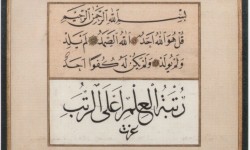 بسم الله الرحمن الرحيم
قل هو الله احد الله الصمد لم يلد
ولم يولد ولم يكن له كفوا احد
رتبة العلم أعلى الرتب